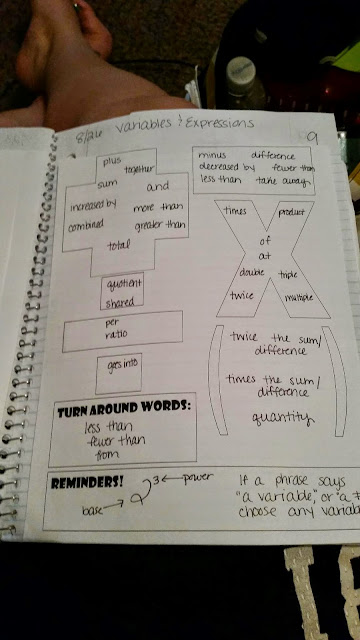 8/26 Variables & Expressions
9
plus
together
sum and
increased by more than
combined greater than
total
minus difference
decreased by fewer than
less than take away
times product
of
at
double triple
twice multiple
quotient
shared
per
ratio
goes into
twice the sum/
difference
times the sum/
difference
quantity
TURN AROUND WORDS:
less than
fewer than
from
REMINDERS!
3 ← power
base →
If a phrase says
"a variable" or "a #
choose any variab